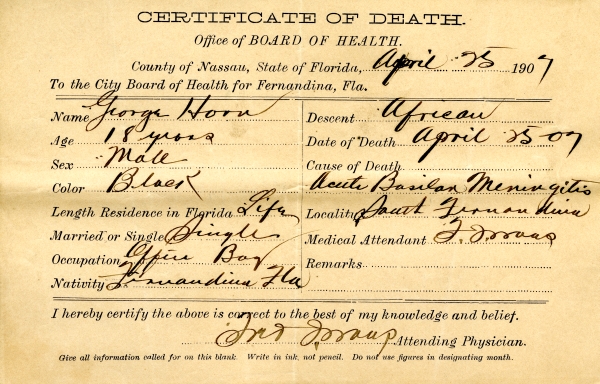 CERTIFICATE OF DEATH.
Office of BOARD OF HEALTH.
County of Nassau, State of Florida, April 25 1907
To the City Board of Health for Fernandina, Fla.
Name George Horn
Age 18 years
Sex Male
Color Black
Length Residence in Florida Life
Married or Single Single
Occupation Office Boy
Nativity Fernandina Fla
Descent African
Date of Death April 25 07
Cause of Death
Acute Basilar Meningitis
Locality South Fernandina
Medical Attendant
Remarks
I hereby certify the above is correct to the best of my knowledge and belief.
Attending Physician.
Give all information called for on this blank. Write in ink, not pencil. Do not use figures in designating month.